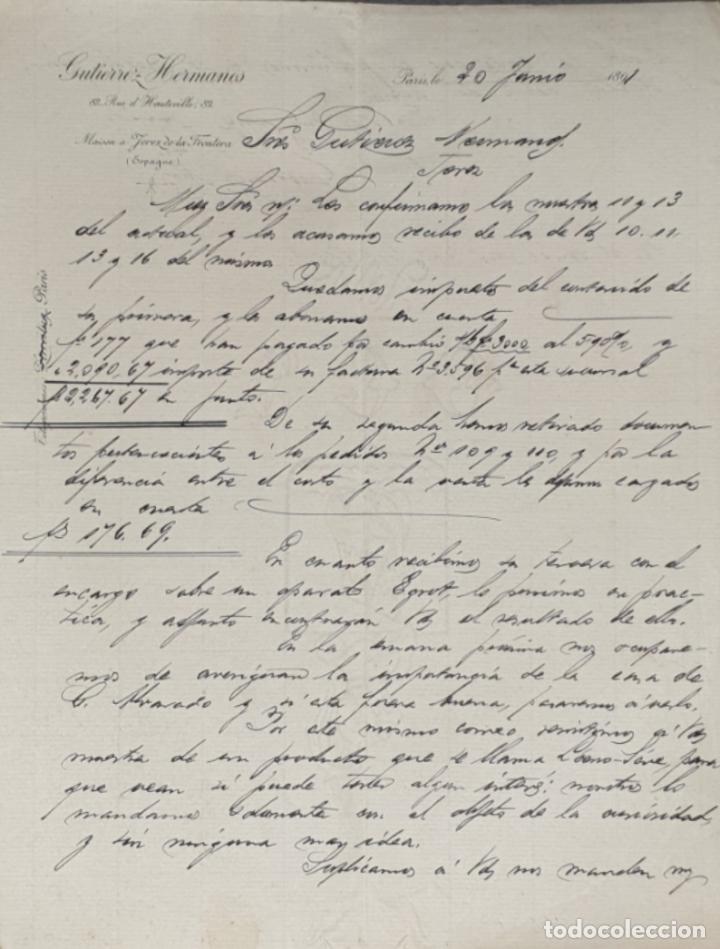 Gutierrez Hermanos
82, Rue d'Hauteville, 82
Maison à Jerez de la Frontera
(Espagne)
Paris, le 20 Junio 1891
Sres Gutierrez Hermanos
Jerez
Muy Sres ns: Les confirmamos las nuestras 11 y 13
del actual, y les acusamos recibo de las de Vds 10. 11
13 y 16 del mismo
Quedamos impuestos del contenido de
su primera, y les abonamos en cuenta
177 que han pagado por cambio 3000 al 5.90%, y
2,090.67 importe de su factura No 3.596 pa esta sucursal
2,267.67 en junto.
De su segunda hemos retirado documen-
tos pertenecientes á los pedidos Nos 109 y 110, y por la
diferencia entre el costo y la venta les cargados
en cuenta
176.69.
En cuanto recibimos su tercera con el
encargo sobre un aparato Egrot, lo pusimos en prac-
tica, y adjunto encontrarán Vds el resultado de ello.
En la semana próxima nos ocupare-
mos de averiguar la importancia de la casa de
C. Alvarado y si esta fuera buena, pasaremos á verlo.
Por este mismo correo remitimos á Vds
muestra de un producto que se llama para
que vean si puede tener algun interés: nosotros lo
mandamos solamente con el objeto de la curiosidad,
y sin ninguna mas idea.
Suplicamos á Vds nos manden
todocoleccion